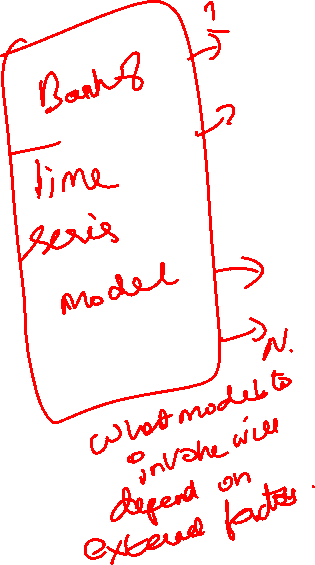 1
Bank of
2
Time
series
model
N.
What model to
invoke will
depend on
external factors.